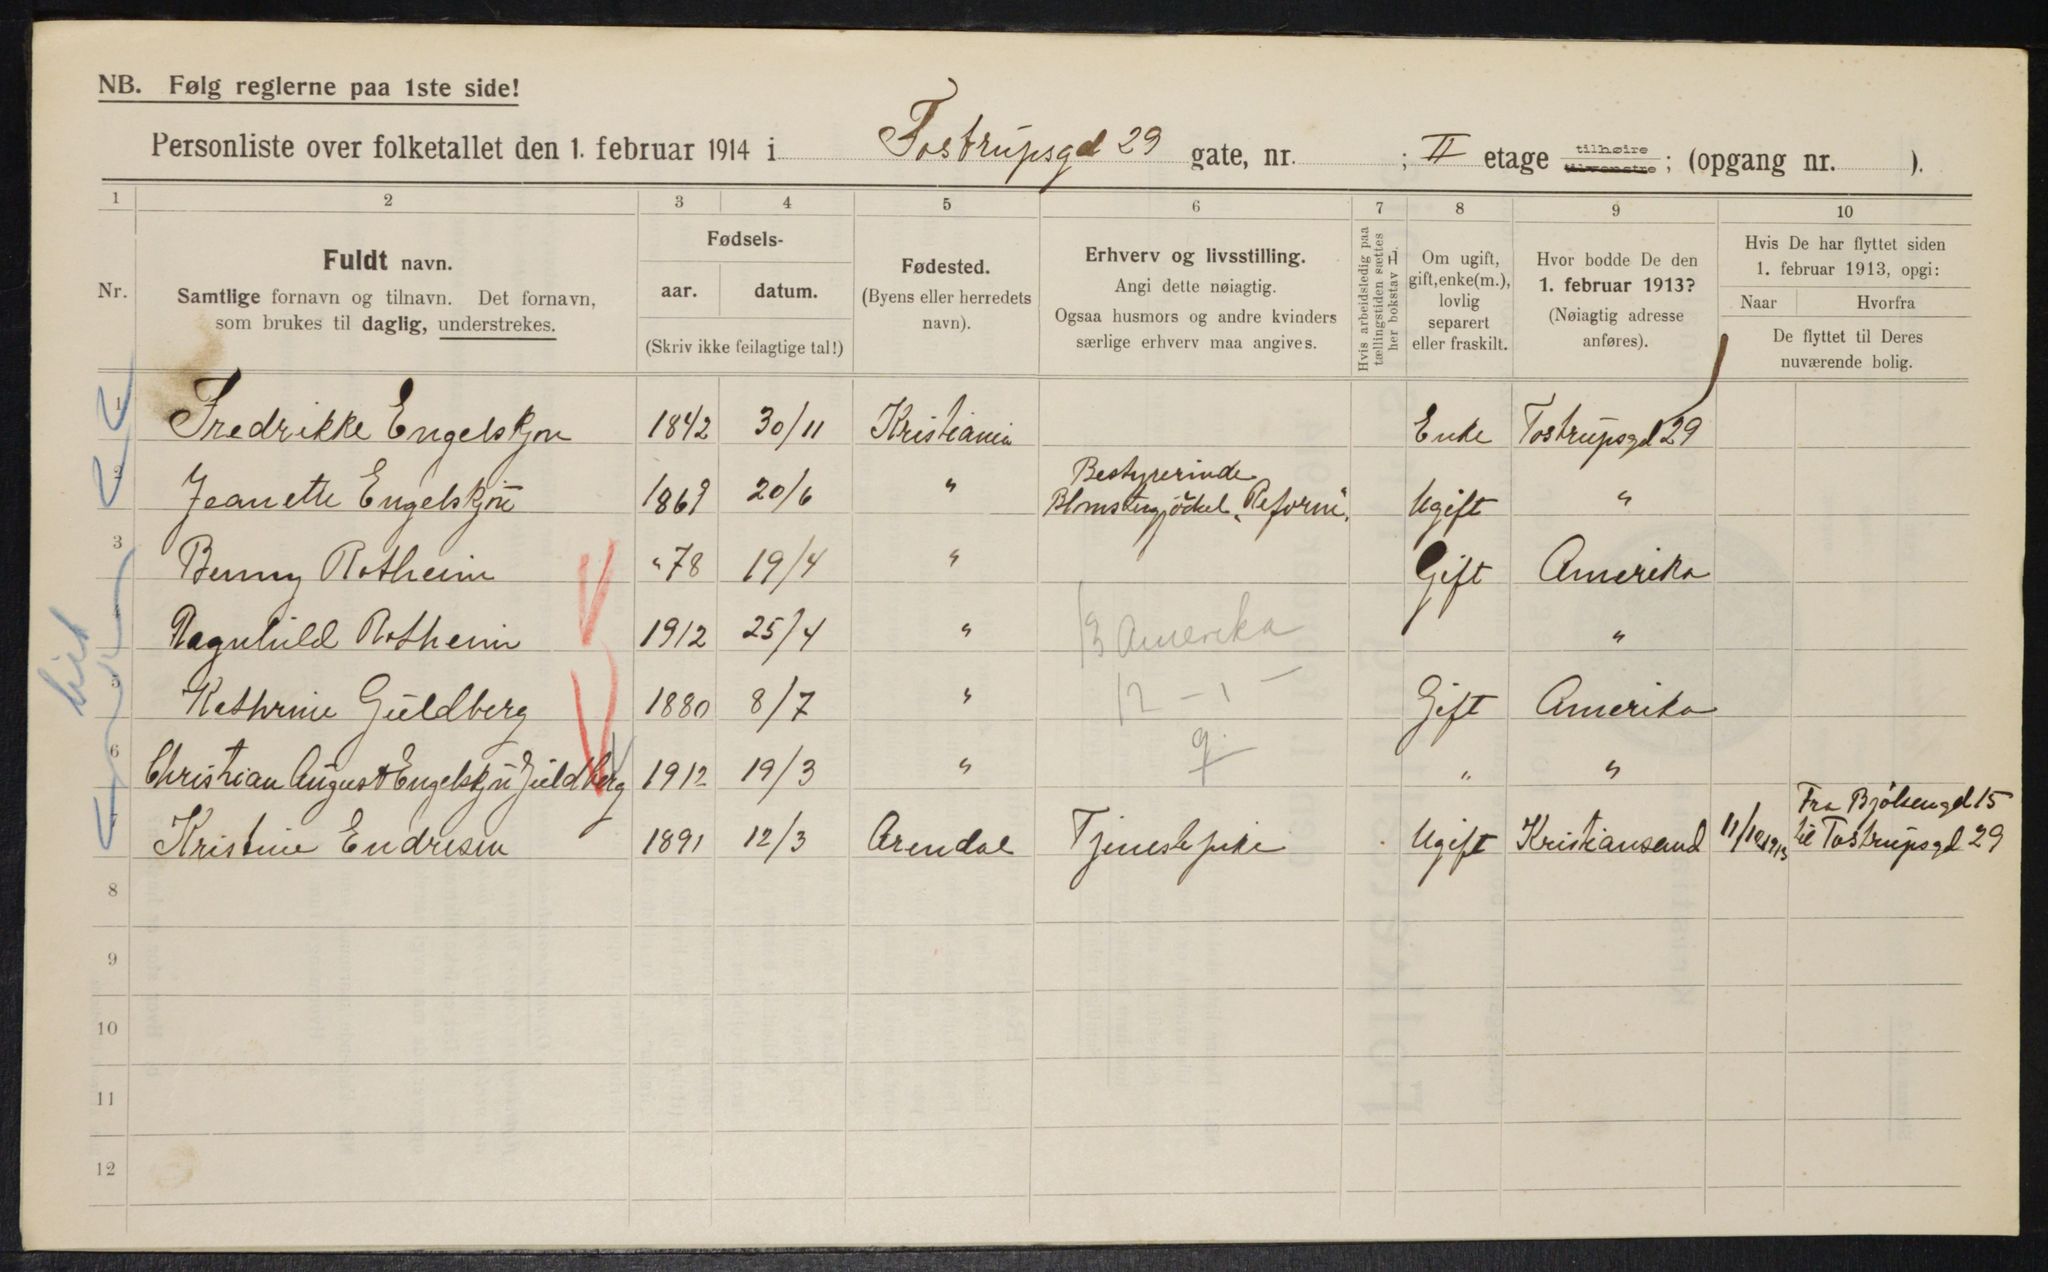 NB. Følg reglerne paa 1ste side!
Personliste over folketallet den 1. februar 1914 i Tostrupsgd 29 gate, nr. ; II etage tilhøire tilvenstre ; (opgang nr. ).
1 2 3 4 5 6 7 8 9 10
Nr.
Fuldt navn.
Samtlige fornavn og tilnavn. Det fornavn,
som brukes til daglig, understrekes.
Fødsels-
aar. datum.
(Skriv ikke feilagtige tal!)
Fødested.
(Byens eller herredets
navn).
Erhverv og livsstilling.
Angi dette nøiagtig.
Ogsaa husmors og andre kvinders
særlige erhverv maa angives.
Hvis arbeidsledig paa
tællingstiden sættes
her bokstav L.
Om ugift,
gift, enke(m.),
lovlig
separert
eller fraskilt.
Hvor bodde De den
1. februar 1913?
(Nøiagtig adresse
anføres).
Hvis De har flyttet siden
1. februar 1913, opgi:
Naar Hvorfra
De flyttet til Deres
nuværende bolig.
1 Fredrikke Engelskjøn 1842 30/11 Kristiania Enke Tostrupsgd 29
2 Jeanette Engelskjøn 1869 20/6 " Bestyrerinde Ugift "
"Reform"
3 Benny Rotheim "78 19/4 " Gift Amerika
4 Ragnhild Rotheim 1912 25/4 " B Amerika "
5 Kathrine Guldberg 1880 8/7 " Gift Amerika
6 Christian August Engelskjøn Guldberg 1912 19/3 " " "
Fra Bjølsengd 15
7 Kristine Endresen 1891 12/3 Arendal Tjenestepike Ugift Kristiansand 11/10 1913 til Tostrupsgd 29
8
9
10
11
12